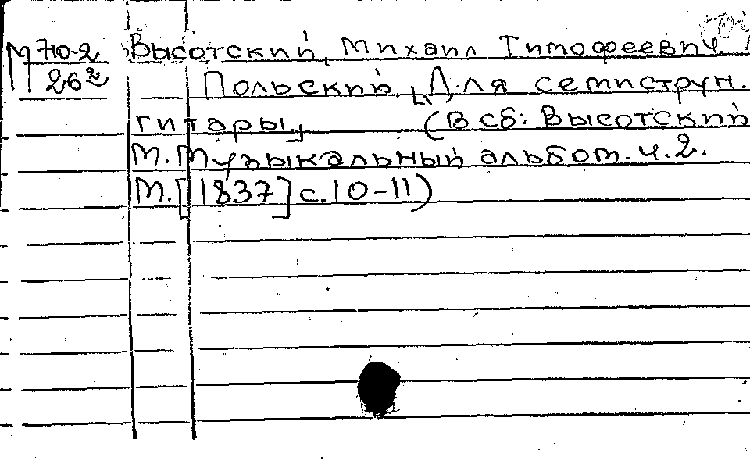 М 710-2 Высотский, Михаил Тимофеевич
26² Польский, [Для семиструн.
гитары] (В сб: Высотский
М. Музыкальный альбом. ч. 2.
М. [1837] с. 10-11)